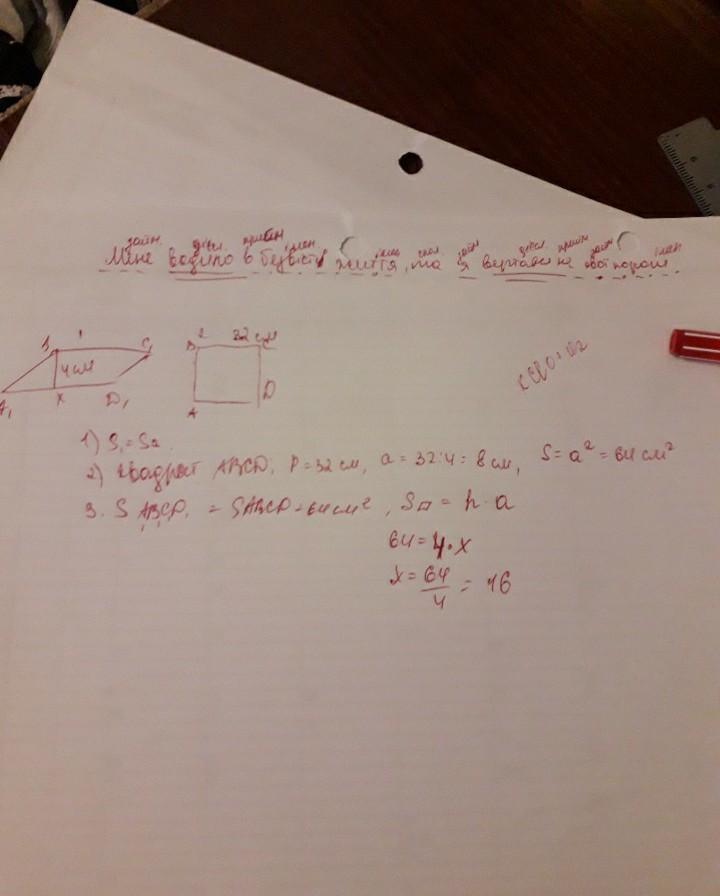 займ. дієсл. прийм. імен. імен. спол. займ. дієсл. прийм. займ. імен.
Мене водило в безвість життя, та я вертався на свої пороги.
B 1 C
4 см
A₁ X D₁
2 32 см
B C
A D
1) S₁ = S₂
2) Квадрат ABCD, P = 32 см, a = 32:4 = 8 см, S = a² = 64 см²
3. S A₁B₁C₁D₁ = SABCD = 64 см², S▱ = h · a
64 = 4 · x
x = 64/4 = 16